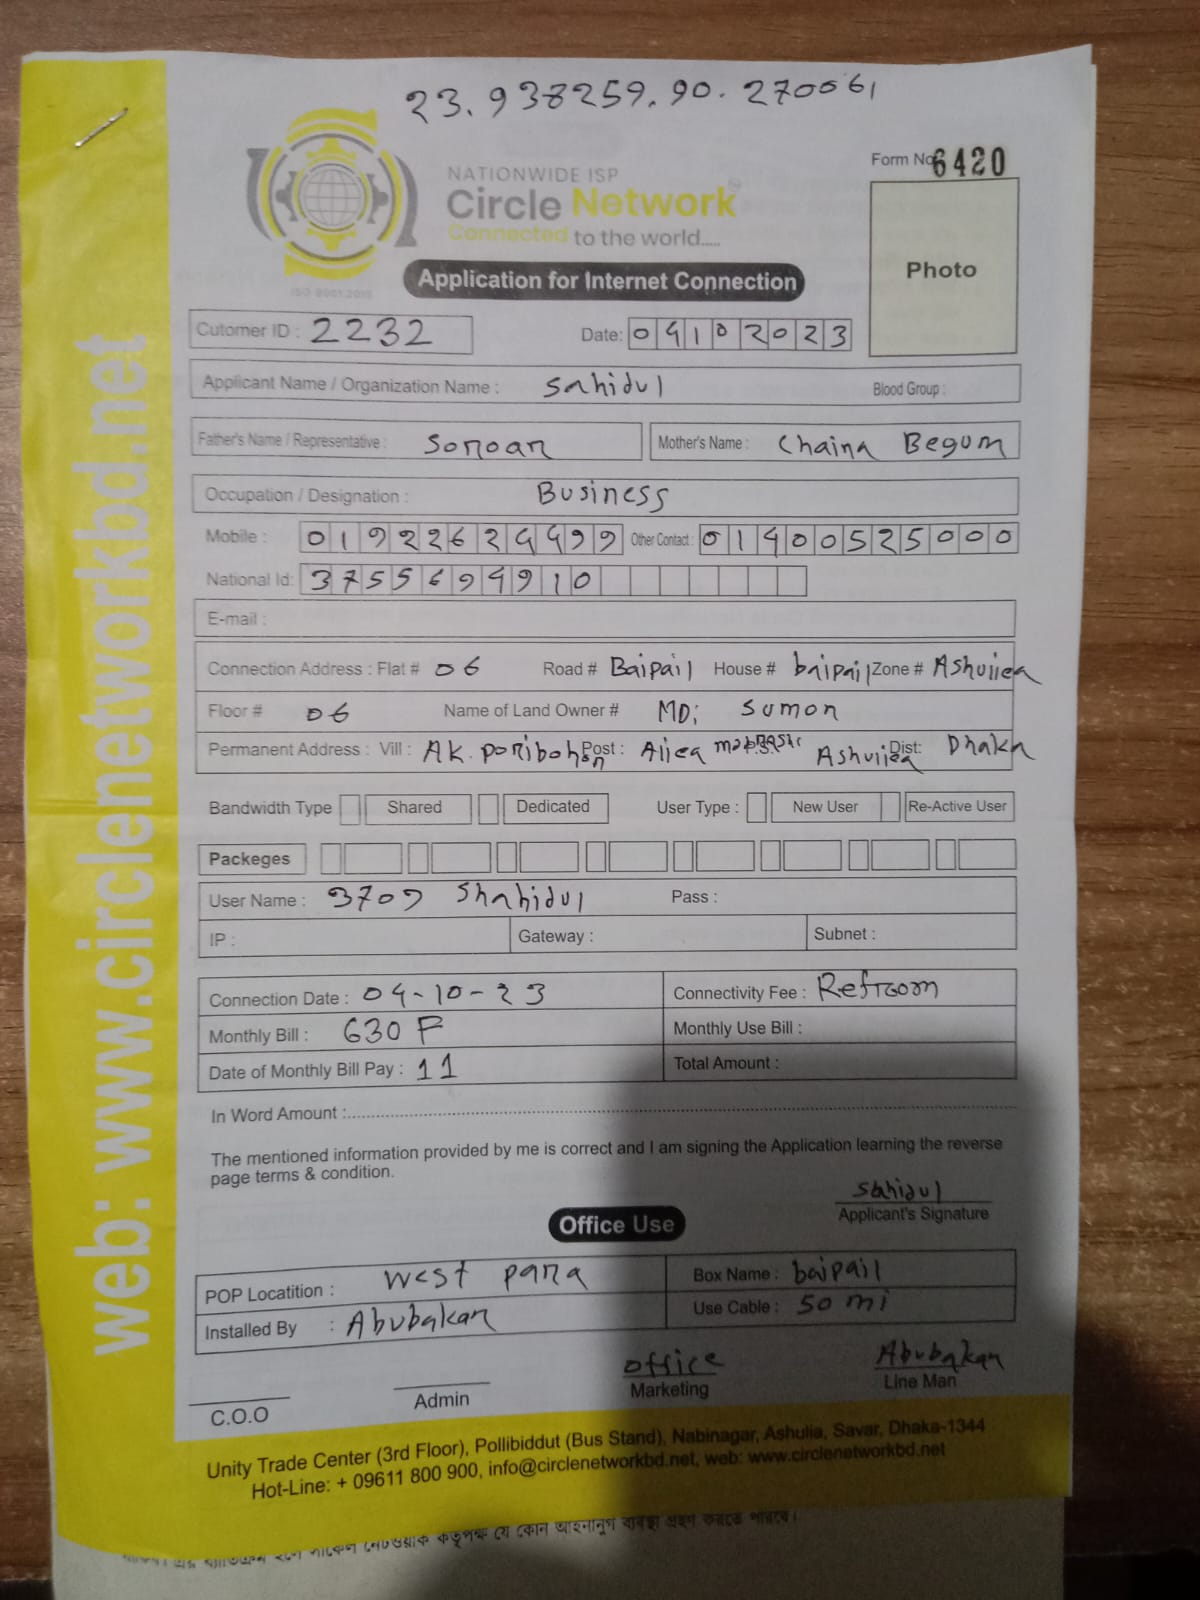 23.938259.90.270061
Form No 6420
NATIONWIDE ISP
Circle Network
Connected to the world.....
ISO 9001:2015
Photo
Application for Internet Connection
Cutomer ID : 2232 Date: 04102023
Applicant Name / Organization Name : Sahidul Blood Group :
Father's Name / Representative : Sonoar Mother's Name : Chaina Begum
Occupation / Designation : Business
Mobile : Other Contact : 01400525000
National Id: 3755694910
E-mail :
Connection Address : Flat # 06 Road # Baipail House # baipail Zone # Ashuliea
Floor # 06 Name of Land Owner # MD: Sumon
Permanent Address : Vill : AK. Poribohon Post : Aliea Ashuliea Dist: Dhaka
Bandwidth Type Shared Dedicated User Type : New User Re-Active User
Packeges
User Name : 3709 Shahidul Pass :
IP : Gateway : Subnet :
Connection Date : 04-10-23 Connectivity Fee :
Monthly Bill : 630 Monthly Use Bill :
Date of Monthly Bill Pay : 11 Total Amount :
In Word Amount :
The mentioned information provided by me is correct and I am signing the Application learning the reverse
page terms & condition.
Sahidul
Applicant's Signature
Office Use
POP Locatition : West para Box Name : baipail
Installed By : Abubakar Use Cable : 50 mi
office Abubakar
C.O.O Admin Marketing Line Man
Unity Trade Center (3rd Floor), Pollibiddut (Bus Stand), Nabinagar, Ashulia, Savar, Dhaka-1344
Hot-Line: + 09611 800 900, info@circlenetworkbd.net, web: www.circlenetworkbd.net
web: www.circlenetworkbd.net